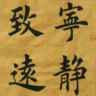 寧静
致遠